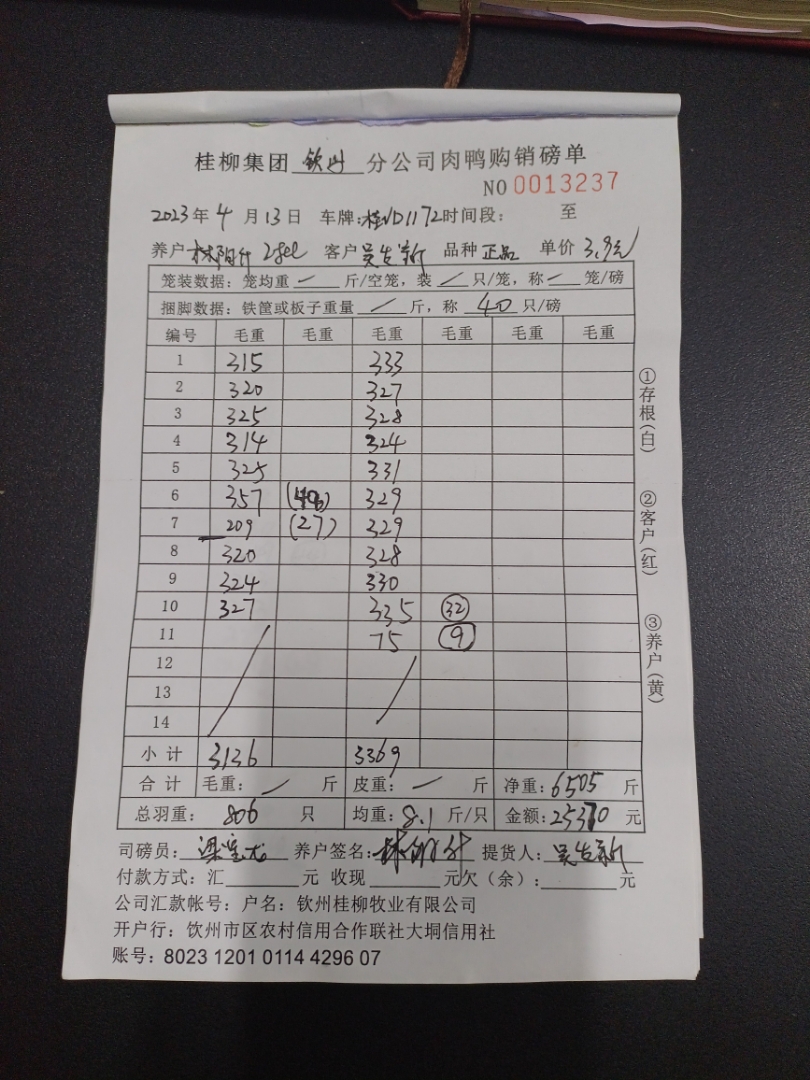 桂柳集团 钦州 分公司肉鸭购销磅单
NO 0013237
2023年 4 月 13 日 车牌:桂ND1172 时间段: 至
养户 林阳升 客户 吴生新 品种 正品 单价 3.9元
笼装数据: 笼均重 — 斤/空笼, 装 — 只/笼, 称 — 笼/磅
捆脚数据: 铁筐或板子重量 — 斤, 称 40 只/磅
编号 毛重 毛重 毛重 毛重 毛重 毛重
1 315 333
2 320 327
3 325 328
4 314 324
5 325 331
6 357 329
7 209 (27) 329
8 320 328
9 324 330
10 327 335 32
11 75 9
12
13
14
小计 3136 3369
合计 毛重: — 斤 皮重: — 斤 净重: 6505 斤
总羽重: 806 只 均重: 8.1 斤/只 金额: 25370 元
司磅员: 养户签名: 提货人: 吴生新
付款方式: 汇 元 收现 元欠(余): 元
公司汇款帐号: 户名: 钦州桂柳牧业有限公司
开户行: 饮州市区农村信用合作联社大垌信用社
账号: 8023 1201 0114 4296 07
①存根(白)
②客户(红)
③养户(黄)